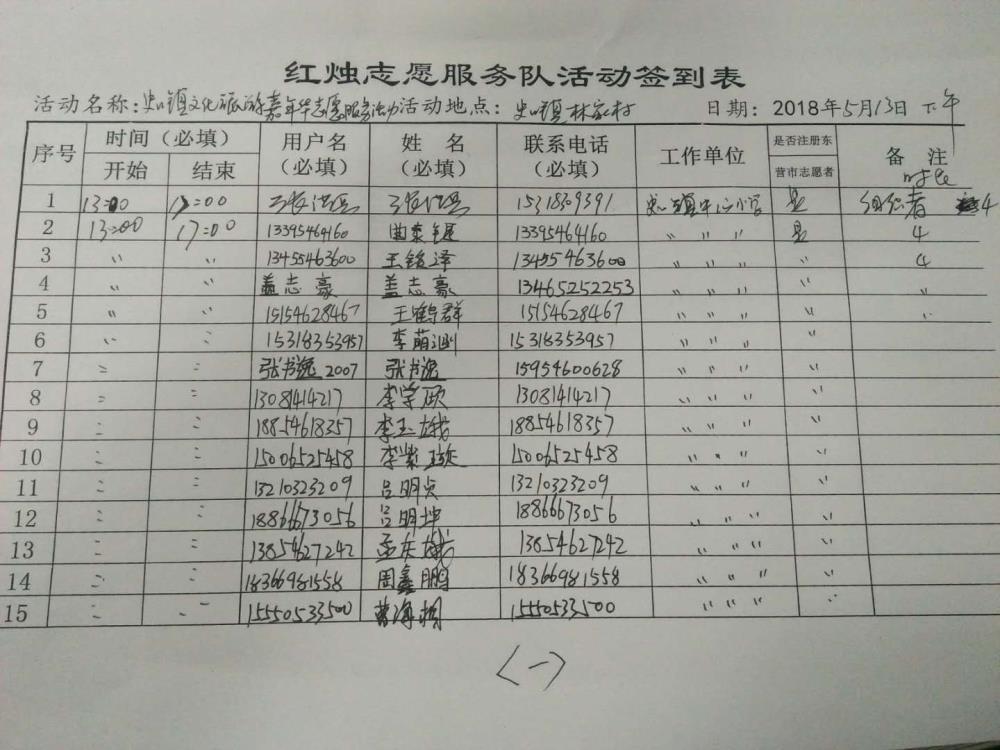 红烛志愿服务队活动签到表
活动名称：史口镇文化旅游嘉年华志愿服务活动 活动地点：史口镇林家村 日期：2018年5月13日 下午
序号 时间（必填） 用户名（必填） 姓 名（必填） 联系电话（必填） 工作单位 是否注册东营市志愿者 备 注 时长
开始 结束
1 13:00 17:00 史口镇中心小学 是 组织者 4
2 13:00 17:00 13395464160 13395464160 〃 〃 〃 是 4
3 〃 〃 13455463600 王锐泽 13455463600 〃 〃 〃 〃 4
4 〃 〃 盖志豪 盖志豪 13465252253 〃 〃 〃 〃 〃
5 〃 〃 15154628467 王鹤群 15154628467 〃 〃 〃 〃 〃
6 〃 〃 15318353957 李萌 15318353957 〃 〃 〃 〃
7 〃 〃 张书逸2007 张书逸 15954600628 〃 〃 〃 〃
8 〃 〃 13081414217 李学颐 13081414217 〃 〃 〃 〃
9 〃 〃 18854618357 李玉娥 18854618357 〃 〃 〃 〃
10 〃 〃 15006525458 李紫璇 15006525458 〃 〃 〃 〃
11 〃 〃 13210323209 吕明贞 13210323209 〃 〃 〃 〃
12 〃 〃 18866673056 吕明坤 18866673056 〃 〃 〃 〃
13 〃 〃 13854627242 13854627242 〃 〃 〃 〃
14 〃 〃 18366981558 周鑫鹏 18366981558 〃 〃 〃 〃
15 〃 〃 15550533500 曹海 15550533500 〃 〃 〃 〃
＜一＞